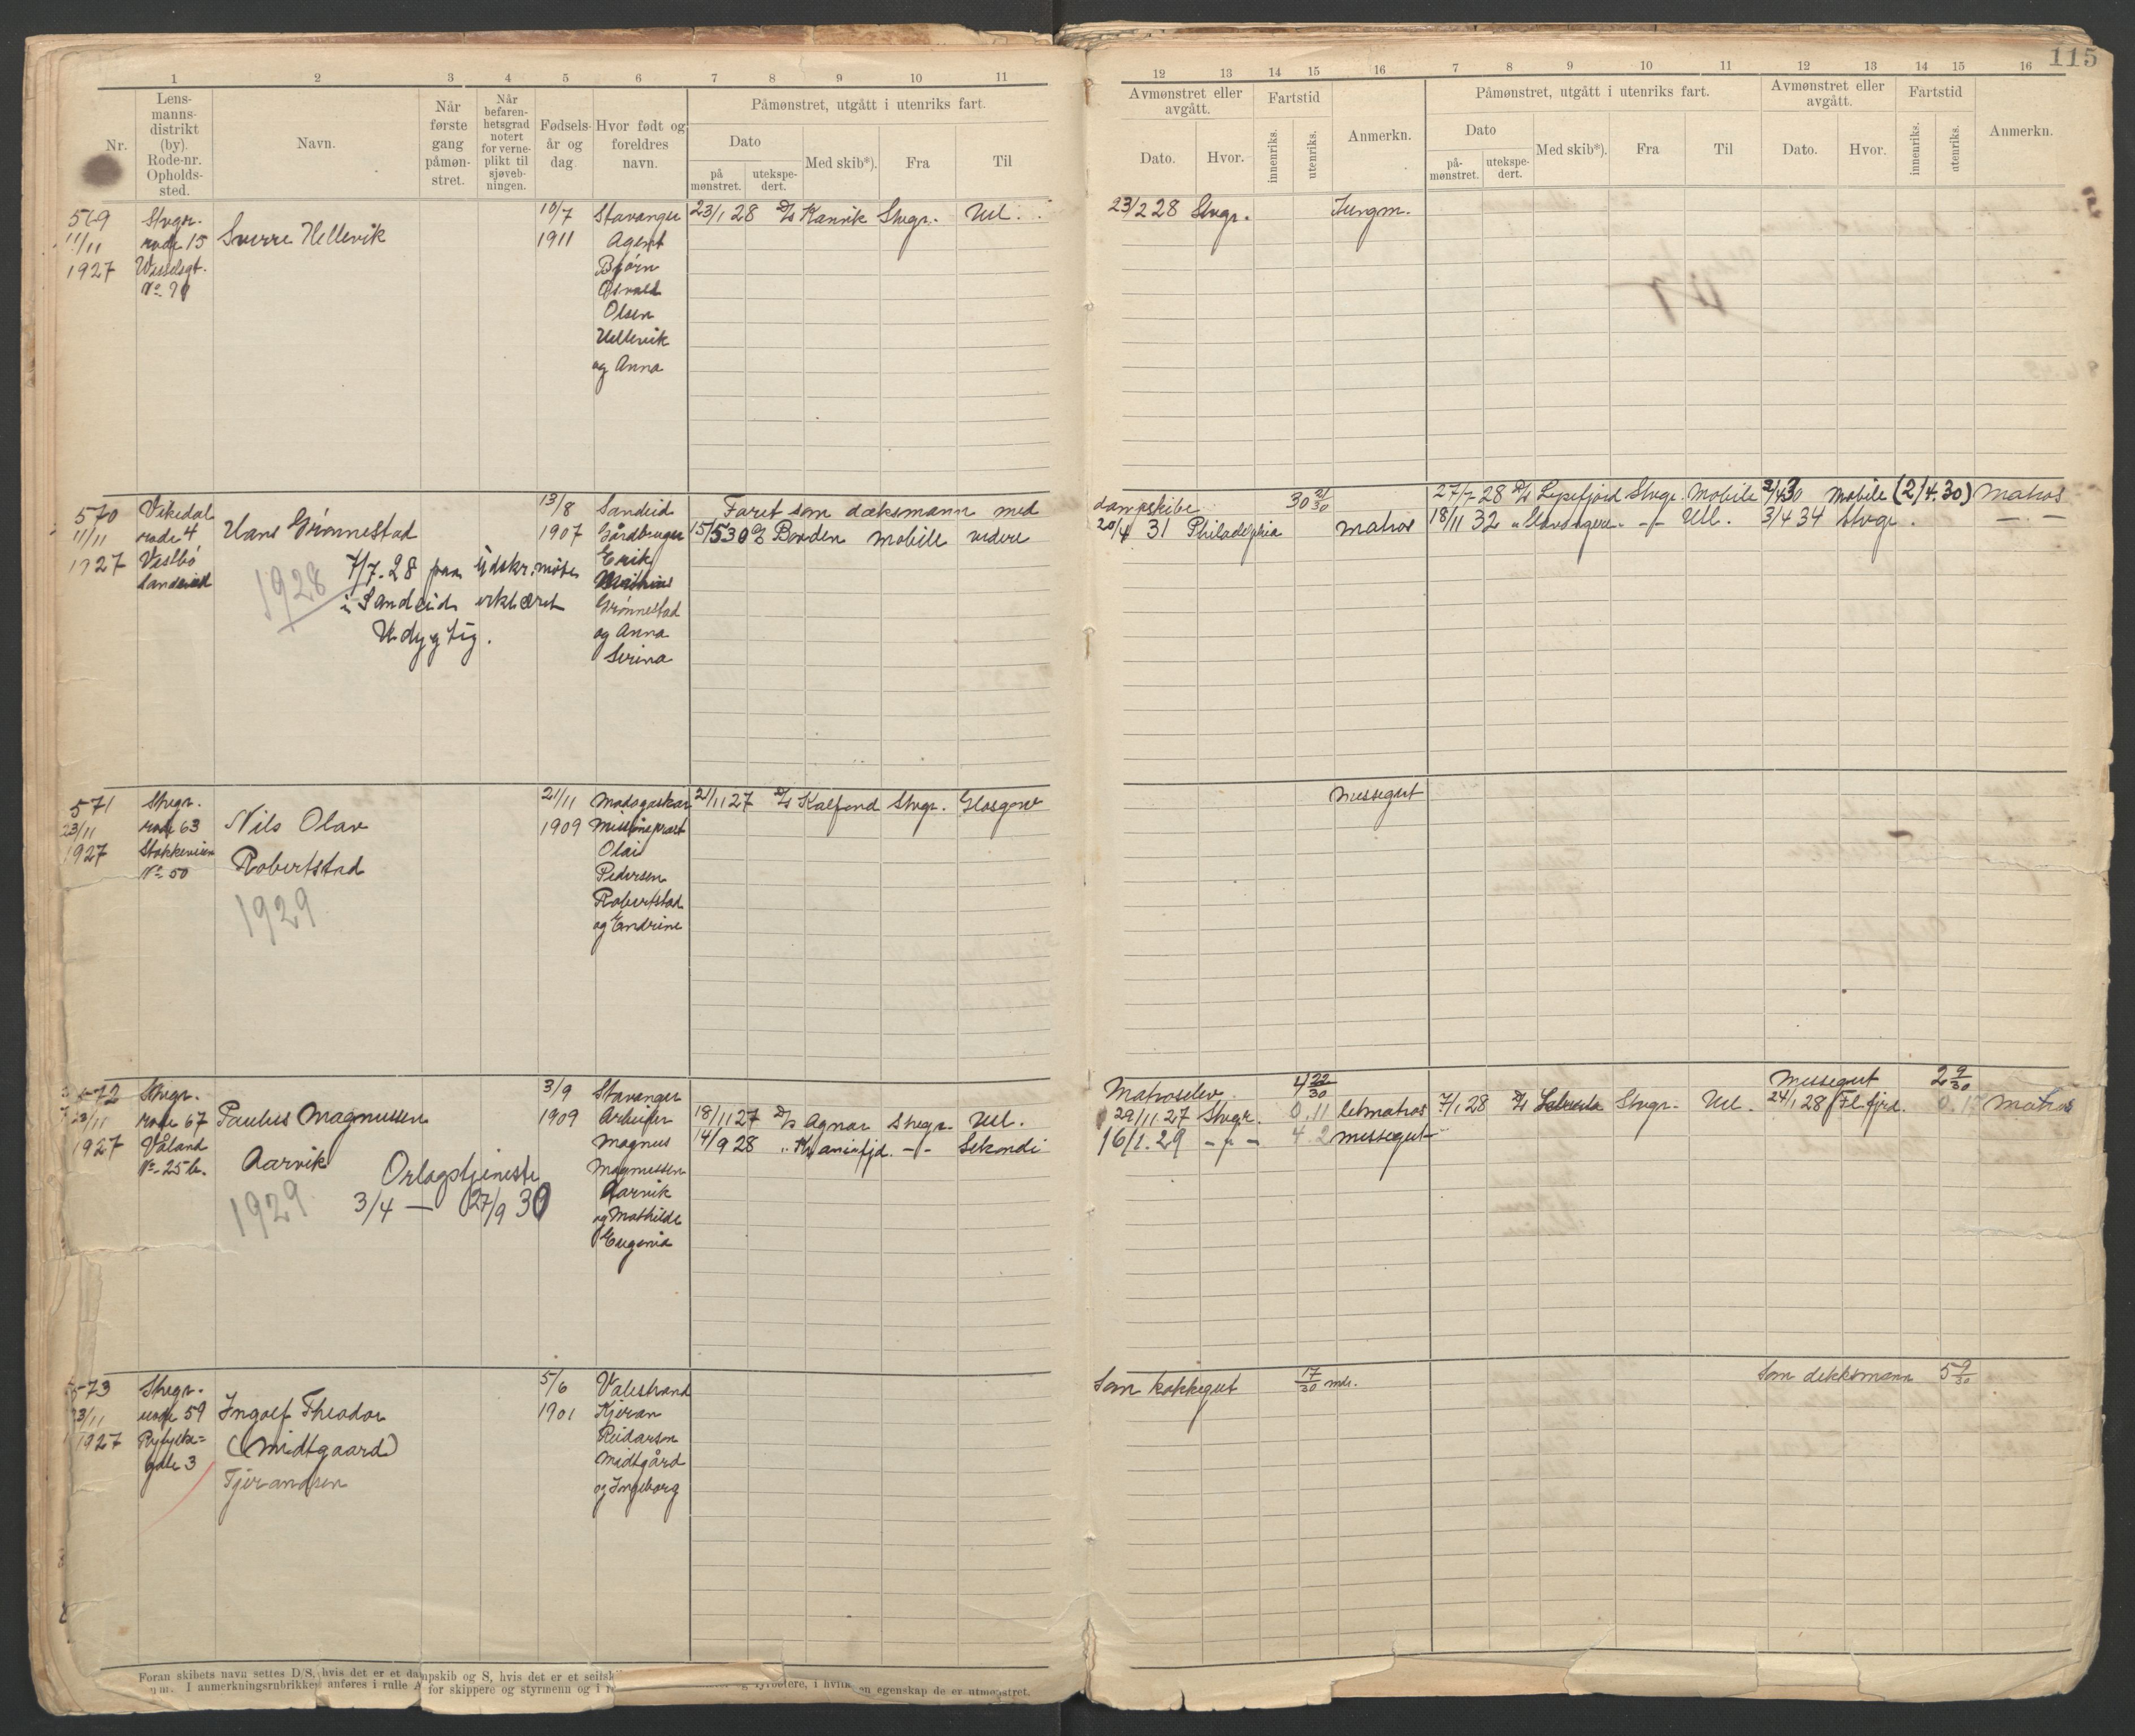 115
1 2 3 4 5 6 7 8 9 10 11
12 13 14 15 16 7 8 9 10 11 12 13 14 15 16
Nr.
Lens-
manns-
distrikt
(by).
Rode-nr.
Opholds-
sted.
Navn.
Når
første
gang
påmøn-
stret.
Når
befaren-
hetsgrad
notert
for verne-
plikt til
sjøveb-
ningen.
Fødsels-
år og
dag
Hvor født og
foreldres
navn.
Påmønstret, utgått i utenriks fart.
Dato
på
mønstret.
utekspe-
dert.
Med skib*).
Fra
Til
Avmønstret eller
avgått.
Dato.
Hvor.
Fartstid
innenriks.
utenriks.
Anmerkn.
Påmønstret, utgått i utenriks fart.
Dato
på-
mønstret.
utekspe-
dert.
Med skib*).
Fra
Til
Avmønstret eller
avgått.
Dato.
Hvor.
Fartstid
innenriks.
utenriks.
Anmerkn.
569
11/11
1927
Stvgr.
rode 15
No 91
Sverre Hellevik
10/7
1911
Stavanger
Agent
Bjørn
Osvald
Olsen
Hellevik
og Anna
23/1 28 D/S Kanvik Stvgr. Utl.
23/2 28 Stvgr. Jungm.
570
11/11
1927
Vikedal
rode 4
Vestbø
Sandeid
Hans Grønnestad
1928
4/7-28 paa Udskr. møte
i Sandeid erklæret
Udygtig.
13/8
1907
Sandeid
Gårdbruger
Erik
Grønnestad
og Anna
Serina
Faret som dæksmann med
dampskibe 30 21/30
15/5 30 D/S Borden Mobile videre
20/4 31 Philadelphia Matros
27/7 28 D/S Lysefjord Stvgr. Mobile 2/4 30 Mobile (2/4.30) Matros
18/11 32 " Stavangeren -"- Utl. 3/4 34 Stvgr. -"-
571
23/11
1927
Stvgr.
rode 63
Stokkeveien
No 50
Nils Olav
Robertstad
1929
21/11
1909
Madagaskar
Missionsprest
Olai
Pedersen
Robertstad
og Endrine
21/11 27 D/S Kalfond Stvgr. Glasgow
Messegut
572
23/11
1927
Stvgr.
rode 67
Våland
No 25 b.
Paulus Magnussen
Aarvik
1929
Orlogstjeneste
3/4 — 27/9 30
3/9
1909
Stavanger
Arbeider
Magnus
Magnussen
Aarvik
og Mathilde
Eugenia
18/11 27 D/S Agnar Stvgr. Utl.
14/9 28 " Kr.aniafjd. -"- Sekondi
Matroselev. 4 22/30
29/11 27 Stvgr. 0.11 letmatros
16/1. 29 -"- 4.2 messegut
Messegut 2 9/30
7/1 28 D/S Stvgr. Utl. 24/1 28 Fl.fjrd. 0.17 Matros
573
23/11
1927
Stvgr.
rode 59
Ryfylke=
gate 3
Ingolf Theodor
(Midtgaard)
Tjerandsen
5/6
1901
Valestrand
Kjeran
Reidarson
Midtgård
og Ingeborg
Som kokkegut 17/30 mdr.
Som dekksmann 5 9/30
Foran skibets navn settes D/S, hvis det er et dampskib og S, hvis det er et seilsk
I anmerkningsrubrikken anføres i rulle A for skippere og styrmenn og i r
fyrbøtere, i hvilken egenskap de er utmønstret.